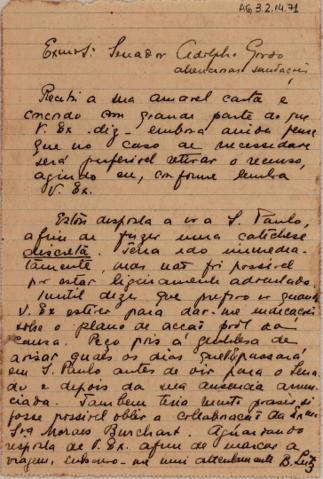 AG3.2.14.71
Exmo Sr. Senador Adolpho Gordo
attenciosas saudações
Recebi a sua amavel carta e
concordo com grande parte do que
V. Ex. diz - embora ainda pense
que no caso de necessidade
será preferivel retirar o recurso,
agindo eu, conforme lembra
V. Ex.
Estou disposta a ir a S. Paulo,
afim de fazer uma catechese
discreta. Teria ido immedia-
tamente, mas não foi possivel
por estar ligeiramente adoentada.
Inutil dizer que prefiro ir quando
V. Ex estiver para dar-me indicações
sobre o plano de acção pról da
causa. Peço pois a gentileza de
avisar quaes os dias que passará
em S. Paulo antes de vir para o Sena-
do e depois da sua ausencia annun-
ciada. Tambem teria muito prazer si
fosse possivel obter a collaboração da Exma
Sra Moraes Burchard. Aguardando
resposta de V. Ex. afim de marcar a
viagem, subscrevo-me mui attentamente B. Lutz